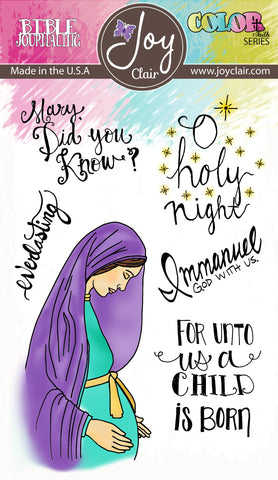 BIBLE
JOURNALING
Joy
Clair
COLOR
Faith
SERIES
Made in the U.S.A
www.joyclair.com
Mary,
Did you
Know?
O
holy
night
everlasting
Immanuel
GOD WITH US.
FOR UNTO
us a
CHILD
iS BORN